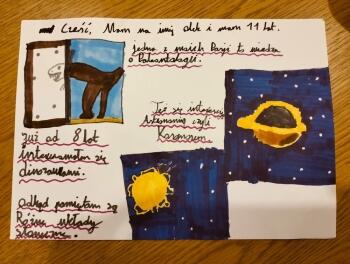 Cześć, Mam na imię Olek i mam 11 lat.
Jedna z moich Pasji to wiedza
o Paleontologii.
Też się interesuję
Astronomią czyli
Kosmosem.
Już od 8 lat
interesowałem się
dinozaurami.
odkąd pamiętam są
Różne układy
Słoneczne.